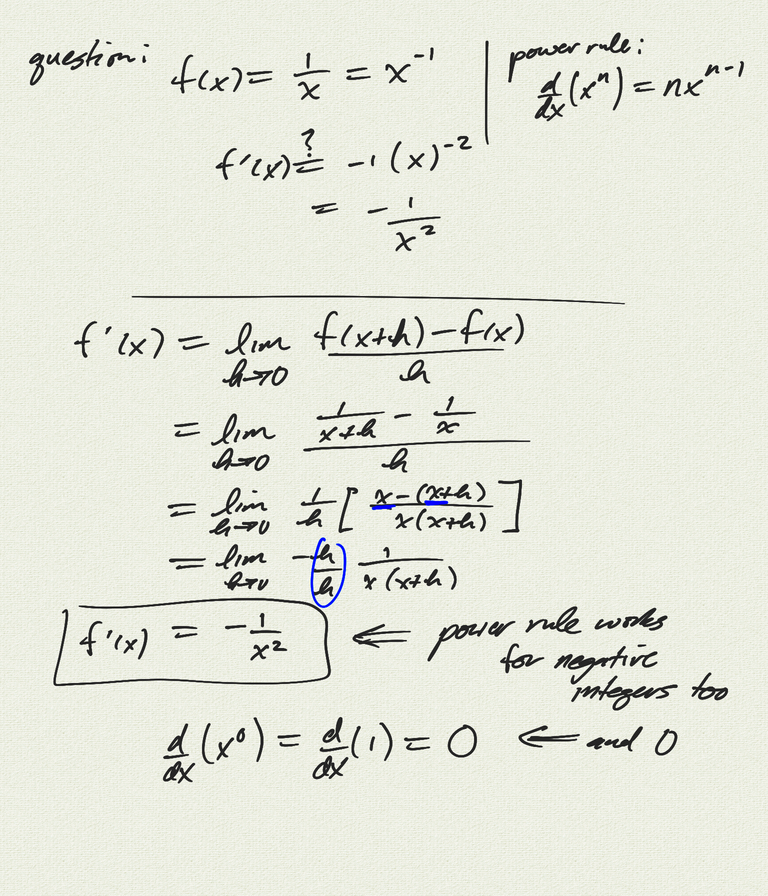 question: f(x) = 1/x = x^-1
power rule:
d/dx (x^n) = nx^n-1
f'(x) ?= -1 (x)^-2
= - 1/x^2
f'(x) = lim h→0 f(x+h) - f(x) / h
= lim h→0 (1/(x+h) - 1/x) / h
= lim h→0 1/h [ x - (x+h) / x(x+h) ]
= lim h→0 -h/h 1/x(x+h)
f'(x) = - 1/x^2 ⇐ power rule works
for negative
integers too
d/dx (x^0) = d/dx (1) = 0 ⇐ and 0